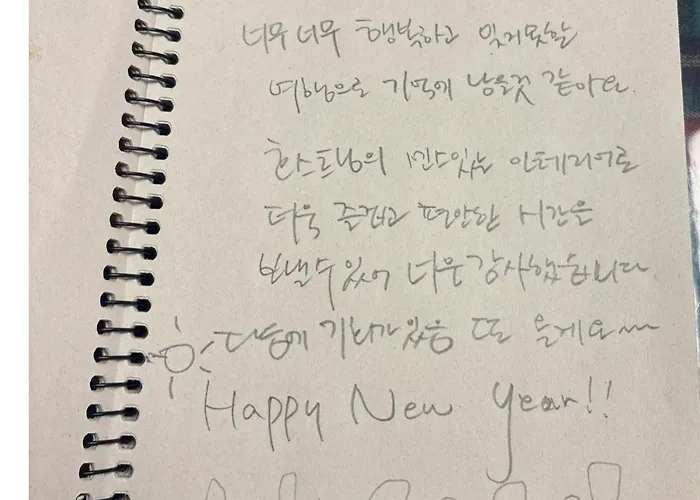 너무너무 행복하고 잊지못할
여행으로 기억에 남을것 같아요.
호스트님의 센스있는 인테리어로
더욱 즐겁고 편안한 시간을
보낼수있어 너무 감사했습니다.
다음에 기회가있음 또 올게요~~
Happy New Year!!